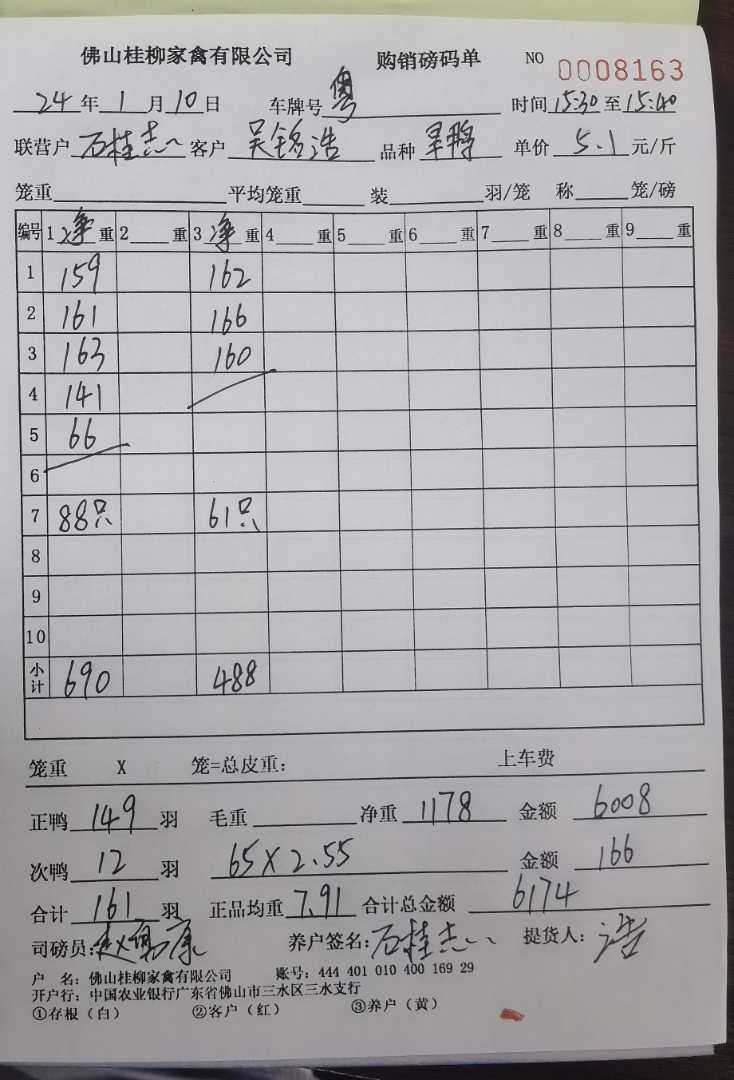 佛山桂柳家禽有限公司 购销磅码单 NO 0008163
24年1月10日 车牌号 粤 时间15:30至15:40
联营户 石桂志 客户 吴铭浩 品种 旱鸭 单价 5.1 元/斤
笼重 平均笼重 装 羽/笼 称 笼/磅
编号 1 净 重 2 重 3 净 重 4 重 5 重 6 重 7 重 8 重 9 重
1 159 162
2 161 166
3 163 160
4 141
5 66
6
7 88只 61只
8
9
10
小计 690 488
笼重 X 笼=总皮重: 上车费
正鸭 149 羽 毛重 净重 1178 金额 6008
次鸭 12 羽 65X2.55 金额 166
合计 161 羽 正品均重 7.91 合计总金额 6174
司磅员: 养户签名: 石桂志 提货人: 浩
户 名: 佛山桂柳家禽有限公司 账号: 444 401 010 400 169 29
开户行: 中国农业银行广东省佛山市三水区三水支行
①存根(白) ②客户(红) ③养户(黄)